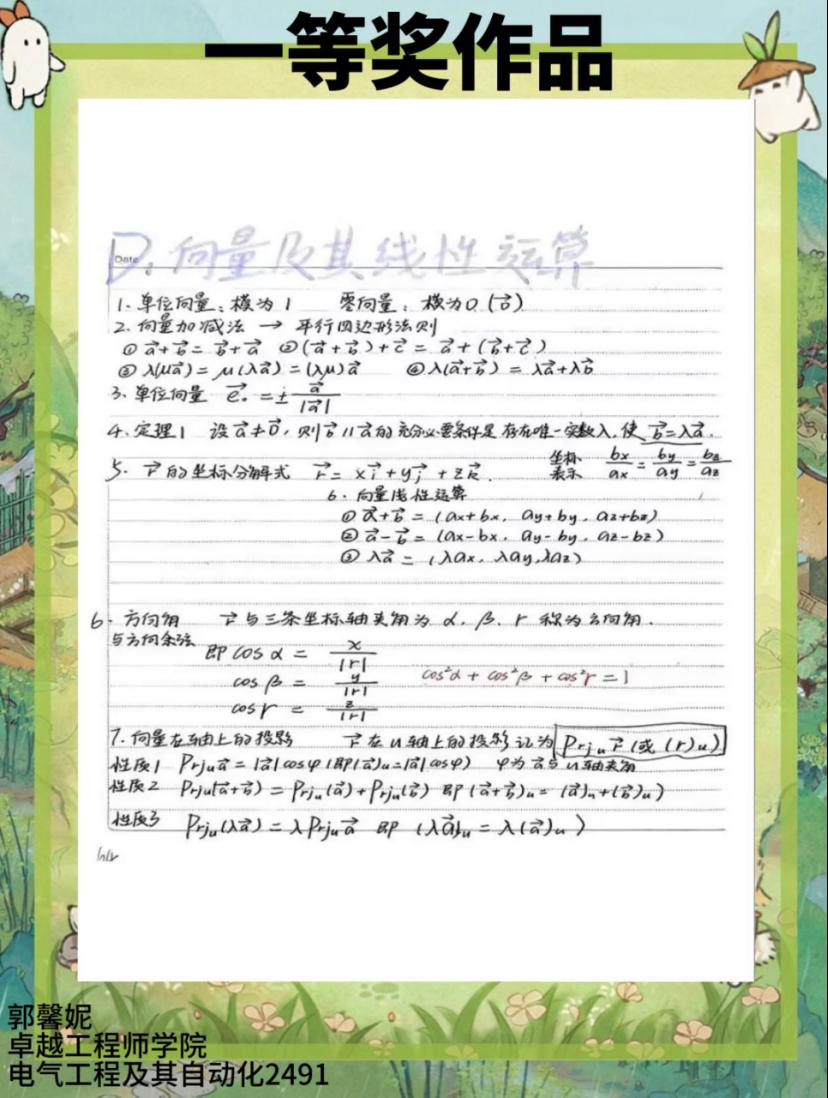 一等奖作品
Date
D. 向量及其线性运算
1. 单位向量：模为1 零向量：模为0 (0⃗)
2. 向量加减法 → 平行四边形法则
① a⃗+b⃗ = b⃗+a⃗ ② (a⃗+b⃗)+c⃗ = a⃗+(b⃗+c⃗)
③ λ(μa⃗) = μ(λa⃗) = (λμ)a⃗ ④ λ(a⃗+b⃗) = λa⃗+λb⃗
3. 单位向量 e⃗₀ = ± a⃗/|a⃗|
4. 定理1 设a⃗≠0⃗，则b⃗∥a⃗的充分必要条件是存在唯一实数λ，使b⃗=λa⃗.
5. r⃗的坐标分解式 r⃗ = xi⃗+yj⃗+zk⃗. 坐标表示 bx/ax = by/ay = bz/az
6. 向量线性运算
① a⃗+b⃗ = (ax+bx, ay+by, az+bz)
② a⃗-b⃗ = (ax-bx, ay-by, az-bz)
③ λa⃗ = (λax, λay, λaz)
6. 方向角与方向余弦 r⃗与三条坐标轴夹角为α, β, r 称为方向角.
即 cosα = x/|r|
cosβ = y/|r| cos²α + cos²β + cos²r = 1
cosr = z/|r|
7. 向量在轴上的投影 r⃗在u轴上的投影记为 Prjᵤr⃗ (或 (r)ᵤ)
性质1 Prjᵤa⃗ = |a⃗|cosφ (即(a⃗)ᵤ=|a⃗|cosφ) φ为a⃗与u轴夹角
性质2 Prjᵤ(a⃗+b⃗) = Prjᵤ(a⃗)+Prjᵤ(b⃗) 即 (a⃗+b⃗)ᵤ = (a⃗)ᵤ+(b⃗)ᵤ)
性质3 Prjᵤ(λa⃗) = λPrjᵤa⃗ 即 (λa⃗)ᵤ = λ(a⃗)ᵤ )
郭馨妮
卓越工程师学院
电气工程及其自动化2491